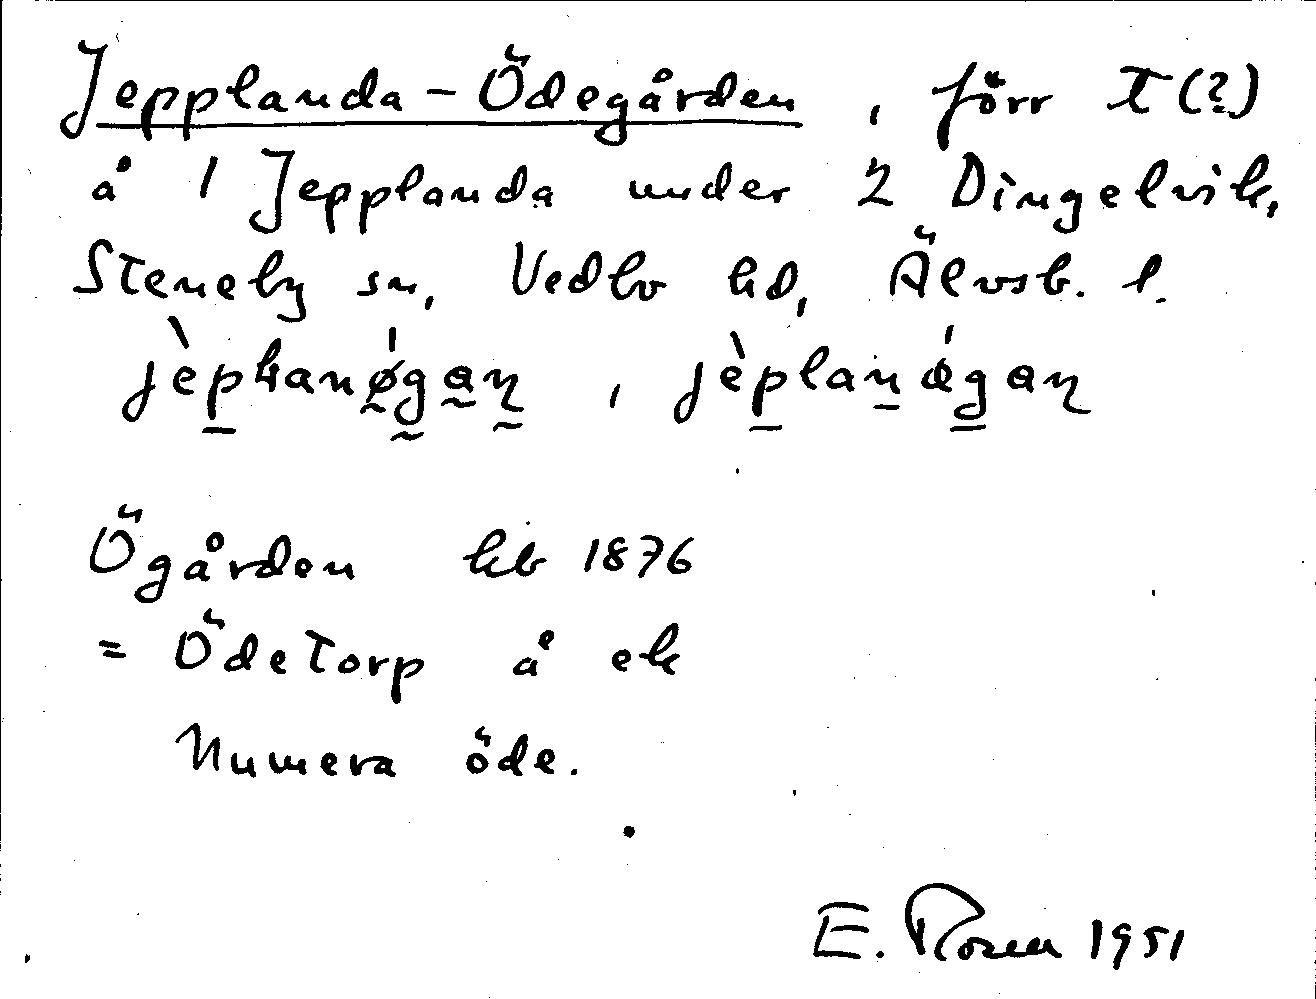 Jepplanda-Ödegården, förr T(?)
å 1 Jepplanda under 2 Dingelvik,
Steneby sn, Vedbo hd, Älvsb. l.
jèpḷanǿgaṇ, jèplanǿgaṇ
Ögården kb 1876
= Ödetorp å ek
Numera öde.
E. Rosen 1951